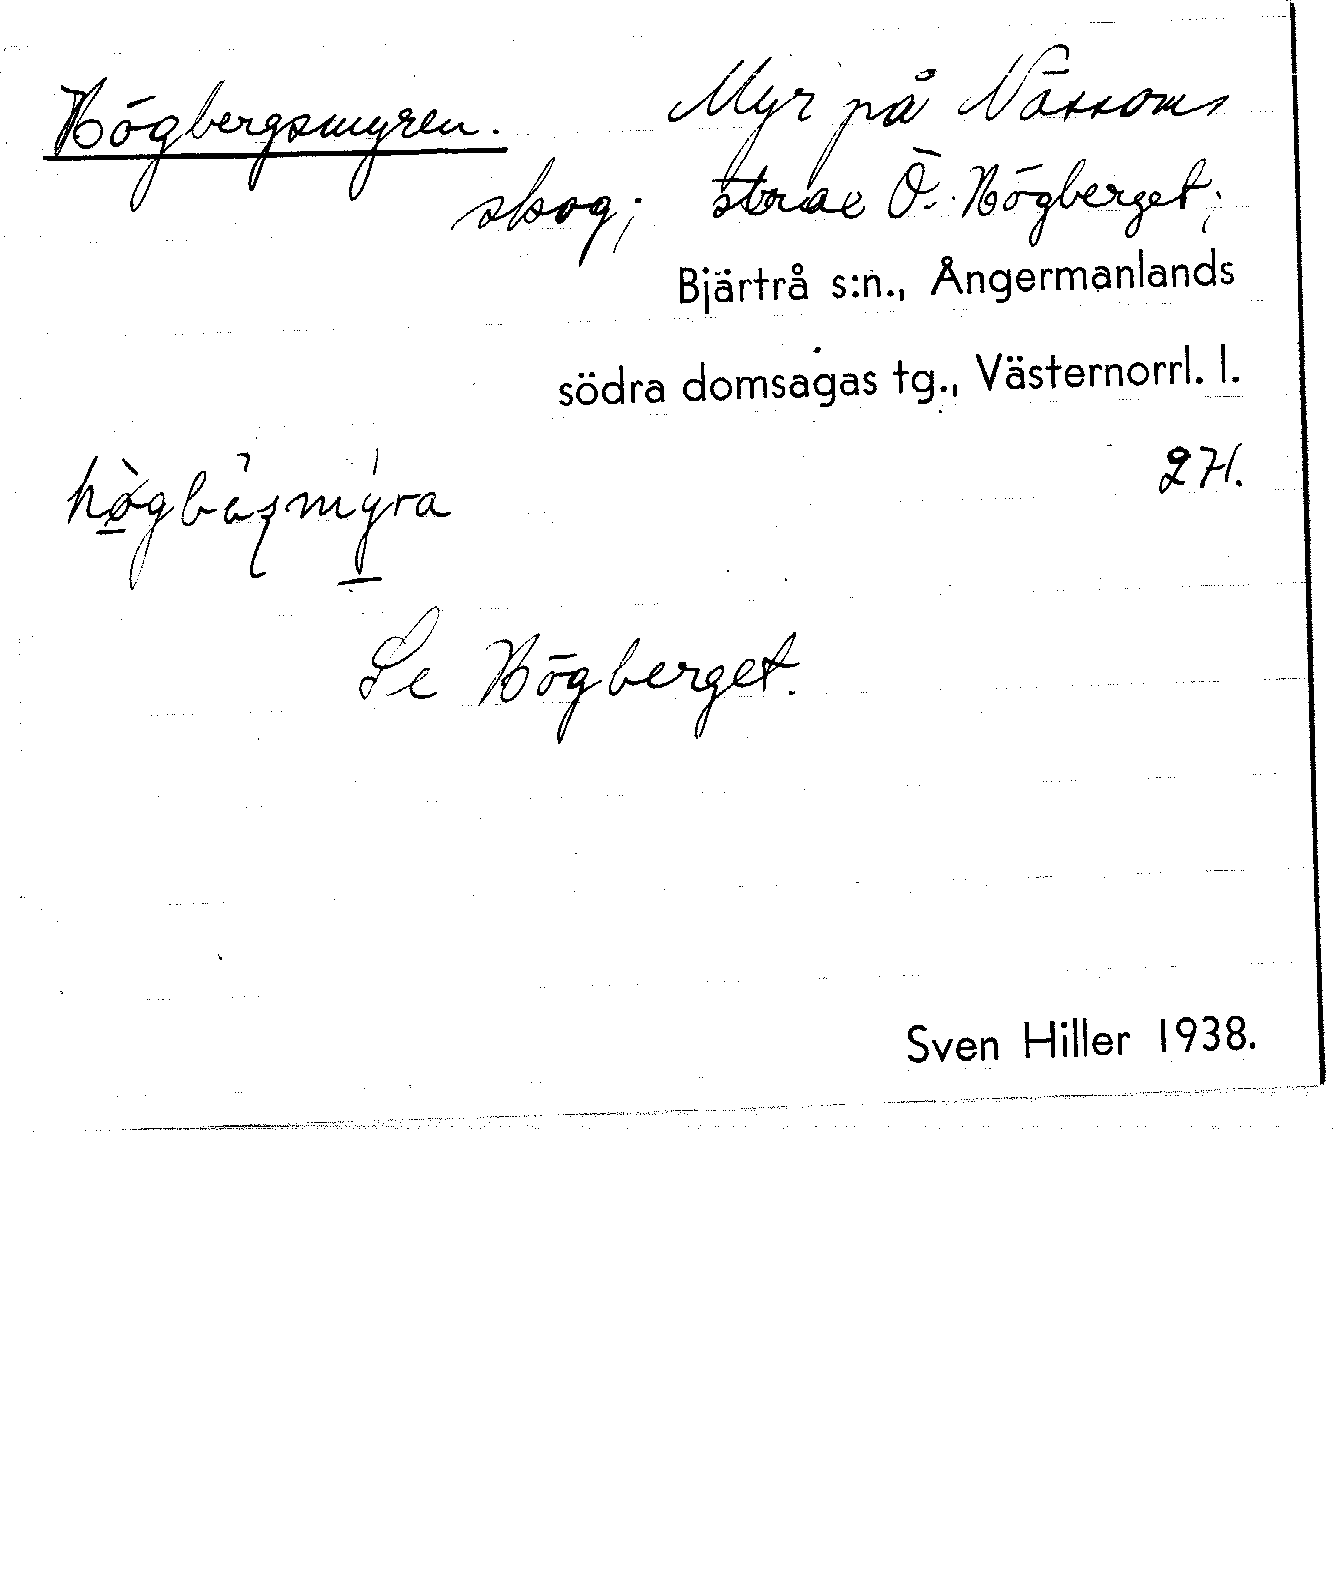 Högbergsmyren. Myr på Nässoms
skog; strax Ö. Högberget;
Bjärtrå s:n., Ångermanlands
södra domsagas tg., Västernorrl. l.
2H.
Se Högberget.
Sven Hiller 1938.